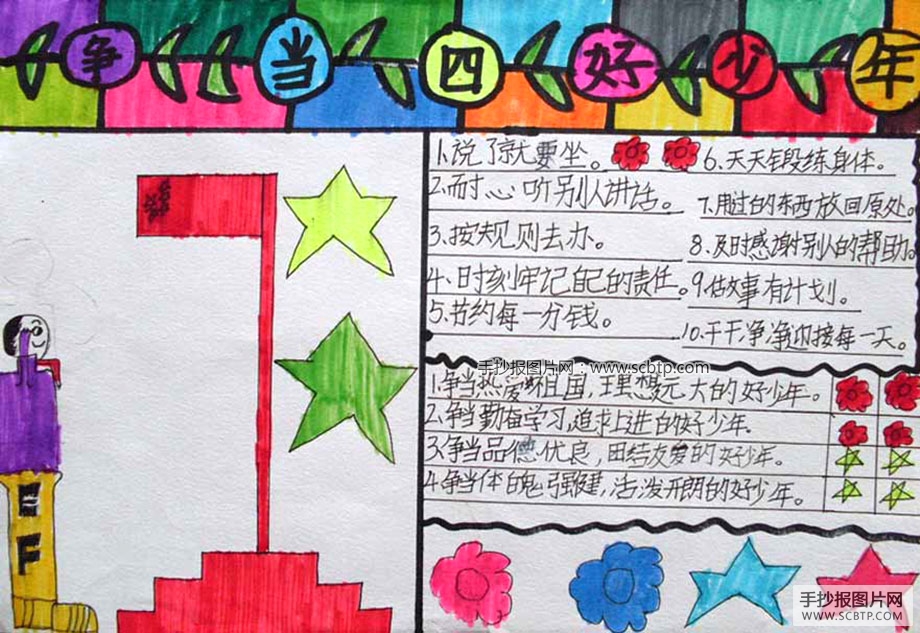 争当四好少年
1.说了就要坐。
2.而心听别人讲话。
3.按规则去办。
4.时刻牢记自己的责任。
5.节约每一分钱。
6.天天锻练身体。
7.用过的东西放回原处。
8.及时感谢别人的帮助。
9.做事有计划。
10.干干净净迎接每一天。
手抄报图片网:www.scbtp.com
1.争当热爱祖国,理想远大的好少年。
2.争当勤奋学习,追求上进的好少年.
3.争当品德优良,团结友爱的好少年。
4.争当体魄强健,活泼开朗的好少年。
手抄报图片网
WWW.SCBTP.COM